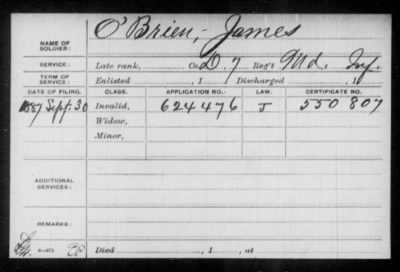 O'Brien,- James
NAME OF SOLDIER:
SERVICE: Late rank, Co. D, 7 Reg't Md. Inf.
TERM OF SERVICE: Enlisted , 1 Discharged , 1
DATE OF FILING. CLASS. APPLICATION NO. LAW. CERTIFICATE NO.
1887 Sept. 30 Invalid, 624476 J 550807
Widow,
Minor,
ADDITIONAL SERVICES:
REMARKS:
Died , 1 , at